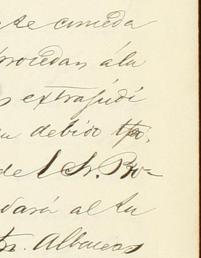 te conceda
procedan á la
s extrajudi
su debido tpo.
del Sr. Pro-
dará al tu
tr. Albaceas